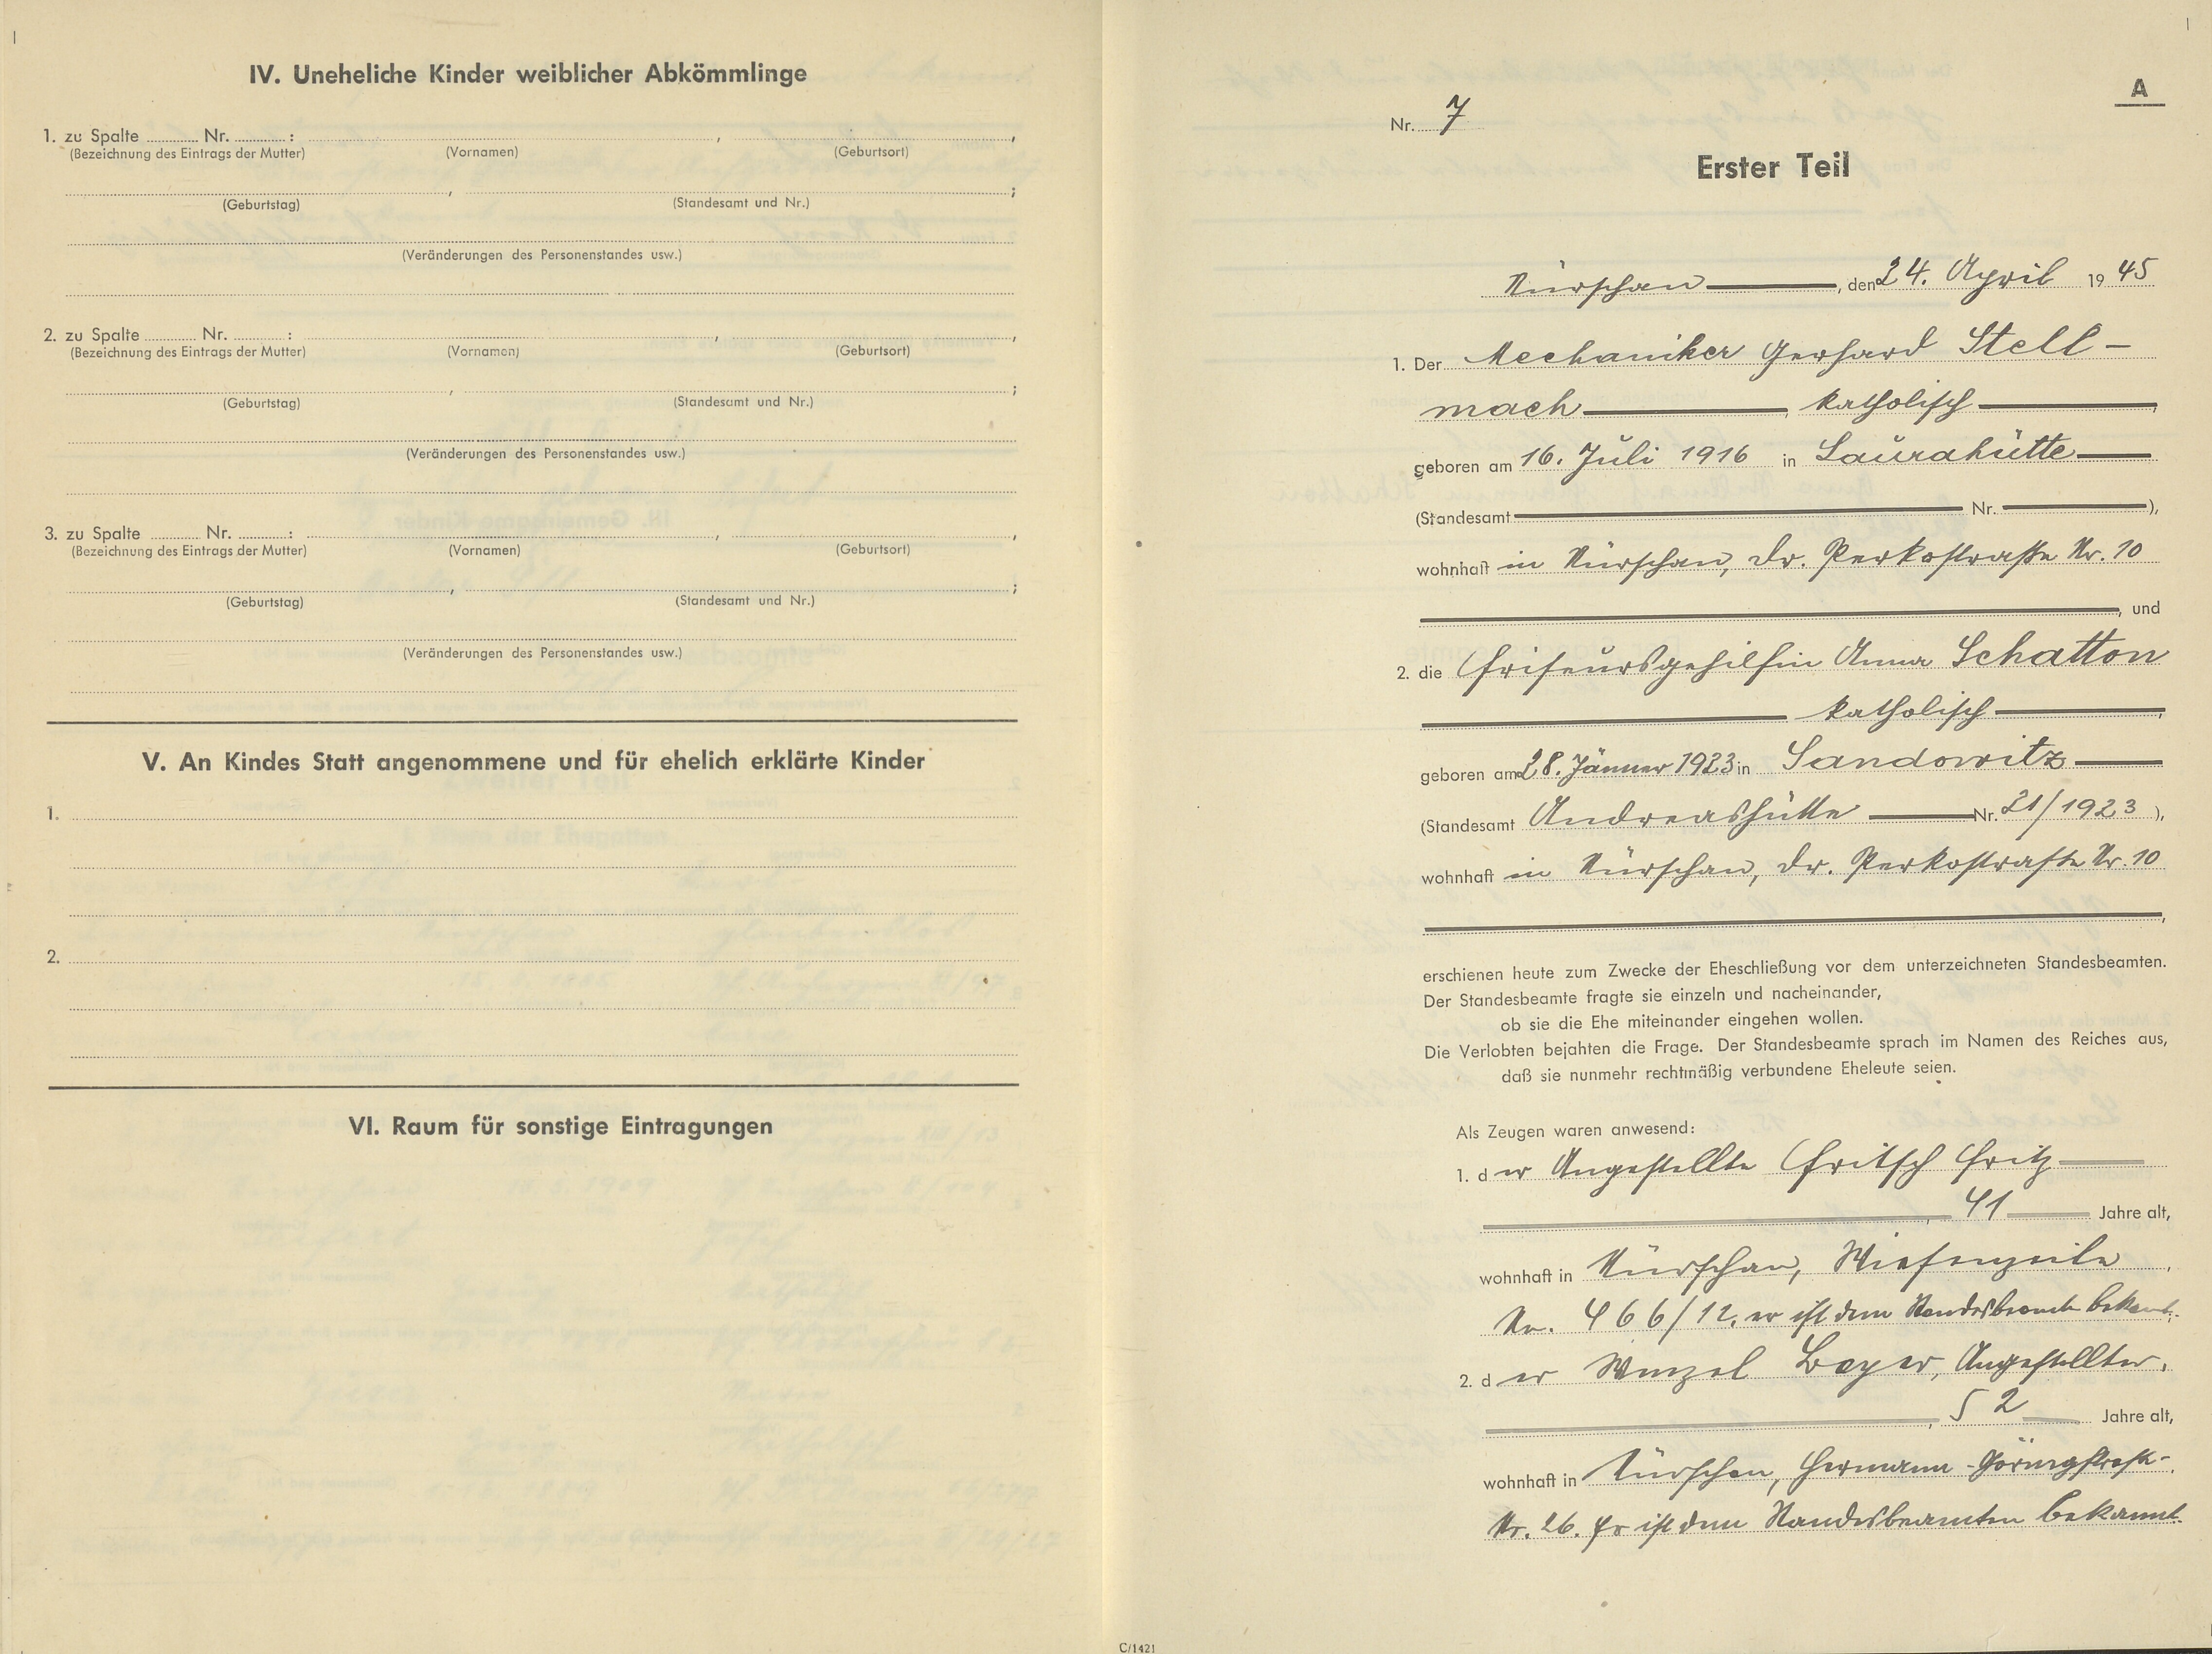 IV. Uneheliche Kinder weiblicher Abkömmlinge
1. zu Spalte ........ Nr. ........ : ........ , ........ ,
(Bezeichnung des Eintrags der Mutter) (Vornamen) (Geburtsort)
........ , ........ ;
(Geburtstag) (Standesamt und Nr.)
(Veränderungen des Personenstandes usw.)
2. zu Spalte ........ Nr. ........ : ........ , ........ ,
(Bezeichnung des Eintrags der Mutter) (Vornamen) (Geburtsort)
........ , ........ ;
(Geburtstag) (Standesamt und Nr.)
(Veränderungen des Personenstandes usw.)
3. zu Spalte ........ Nr. ........ : ........ , ........ ,
(Bezeichnung des Eintrags der Mutter) (Vornamen) (Geburtsort)
........ , ........ ;
(Geburtstag) (Standesamt und Nr.)
(Veränderungen des Personenstandes usw.)
V. An Kindes Statt angenommene und für ehelich erklärte Kinder
1.
2.
VI. Raum für sonstige Eintragungen
A
Nr. 7
Erster Teil
Nürschan, den 24. April 1945
1. Der Mechaniker Gerhard Stell-
mach, katholisch,
geboren am 16. Juli 1916 in Laurahütte
(Standesamt Nr. ),
wohnhaft in Nürschan, Dr. Perkostraße Nr. 10
, und
2. die Friseursgehilfin Anna Schatton
katholisch,
geboren am 28. Jänner 1923 in Sandowitz
(Standesamt Andreashütte Nr. 21/1923),
wohnhaft in Nürschan, Dr. Perkostraße Nr. 10
,
erschienen heute zum Zwecke der Eheschließung vor dem unterzeichneten Standesbeamten.
Der Standesbeamte fragte sie einzeln und nacheinander,
ob sie die Ehe miteinander eingehen wollen.
Die Verlobten bejahten die Frage. Der Standesbeamte sprach im Namen des Reiches aus,
daß sie nunmehr rechtmäßig verbundene Eheleute seien.
Als Zeugen waren anwesend:
1. der Angestellte Fritsch Fritz
, 41 Jahre alt,
wohnhaft in Nürschan, Wiesenzeile,
Nr. 466/12, er ist dem Standesbeamte bekannt.
2. der Wenzel Beyer, Angestellter,
, 52 Jahre alt,
wohnhaft in Nürschan, Hermann-Göringstraße-
Nr. 26. Er ist dem Standesbeamten bekannt.
C/1421